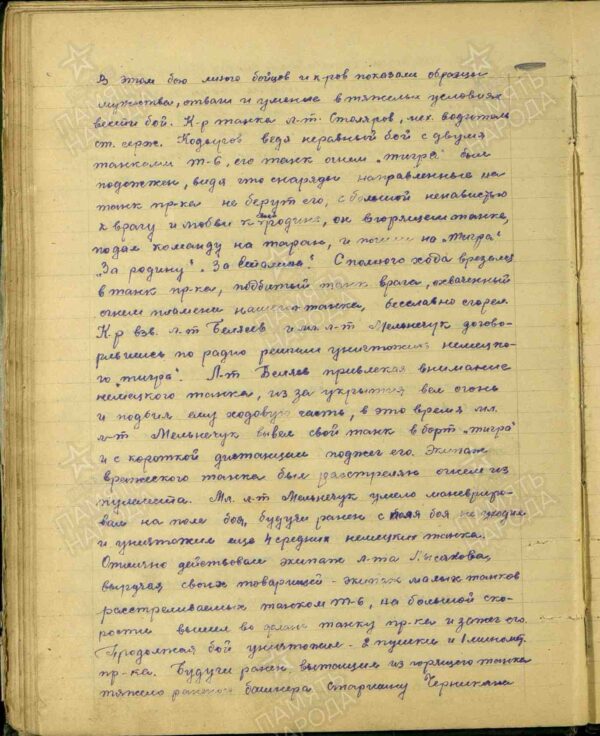 В этом бою много бойцов и к-ров показали образцы
мужества, отваги и умение в тяжелых условиях
вести бой. К-р танка л-т. Столяров, мех. водитель
ст. серж. ведя неравный бой с двумя
танками Т-6, его танк огнем „тигра" был
подожжен, видя что снаряды направленные на
танк пр-ка не берут его, с большой ненавистью
к врагу и любви к родине, он в горящем танке,
подал команду на таран, и на „тигра"
„За родину" „За Сталина". С полного хода врезался
в танк пр-ка, подбитый танк врага, охваченный
огнем пламени нашего танка, бесславно сгорел.
К-р взв. л-т Беляев и мл. л-т Мельничук догово-
рившись по радио решили уничтожить немецко-
го „тигра". Л-т Беляев привлекая внимание
немецкого танка, из за укрытия вел огонь
и подбил ему ходовую часть, в это время мл.
л-т Мельничук вывел свой танк в борт „тигра"
и с короткой дистанции поджег его. Экипаж
вражеского танка был расстрелян огнем из
пулемета. Мл. л-т Мельничук умело маневриро-
вал на поле боя, будучи ранен с поля боя не уходил
и уничтожил еще 4 средних немецких танка.
Отлично действовал экипаж л-та Лысакова,
выручая своих товарищей - экипаж малых танков
расстреливаемых танком Т-6, на большой ско-
рости вышел во танку пр-ка и зажег его.
Продолжая бой уничтожил - 2 пушки и 1 миномет
пр-ка. Будучи ранен вытащил из горящего танка
тяжело раненого башнера старшину
ПАМЯТЬ НАРОДА